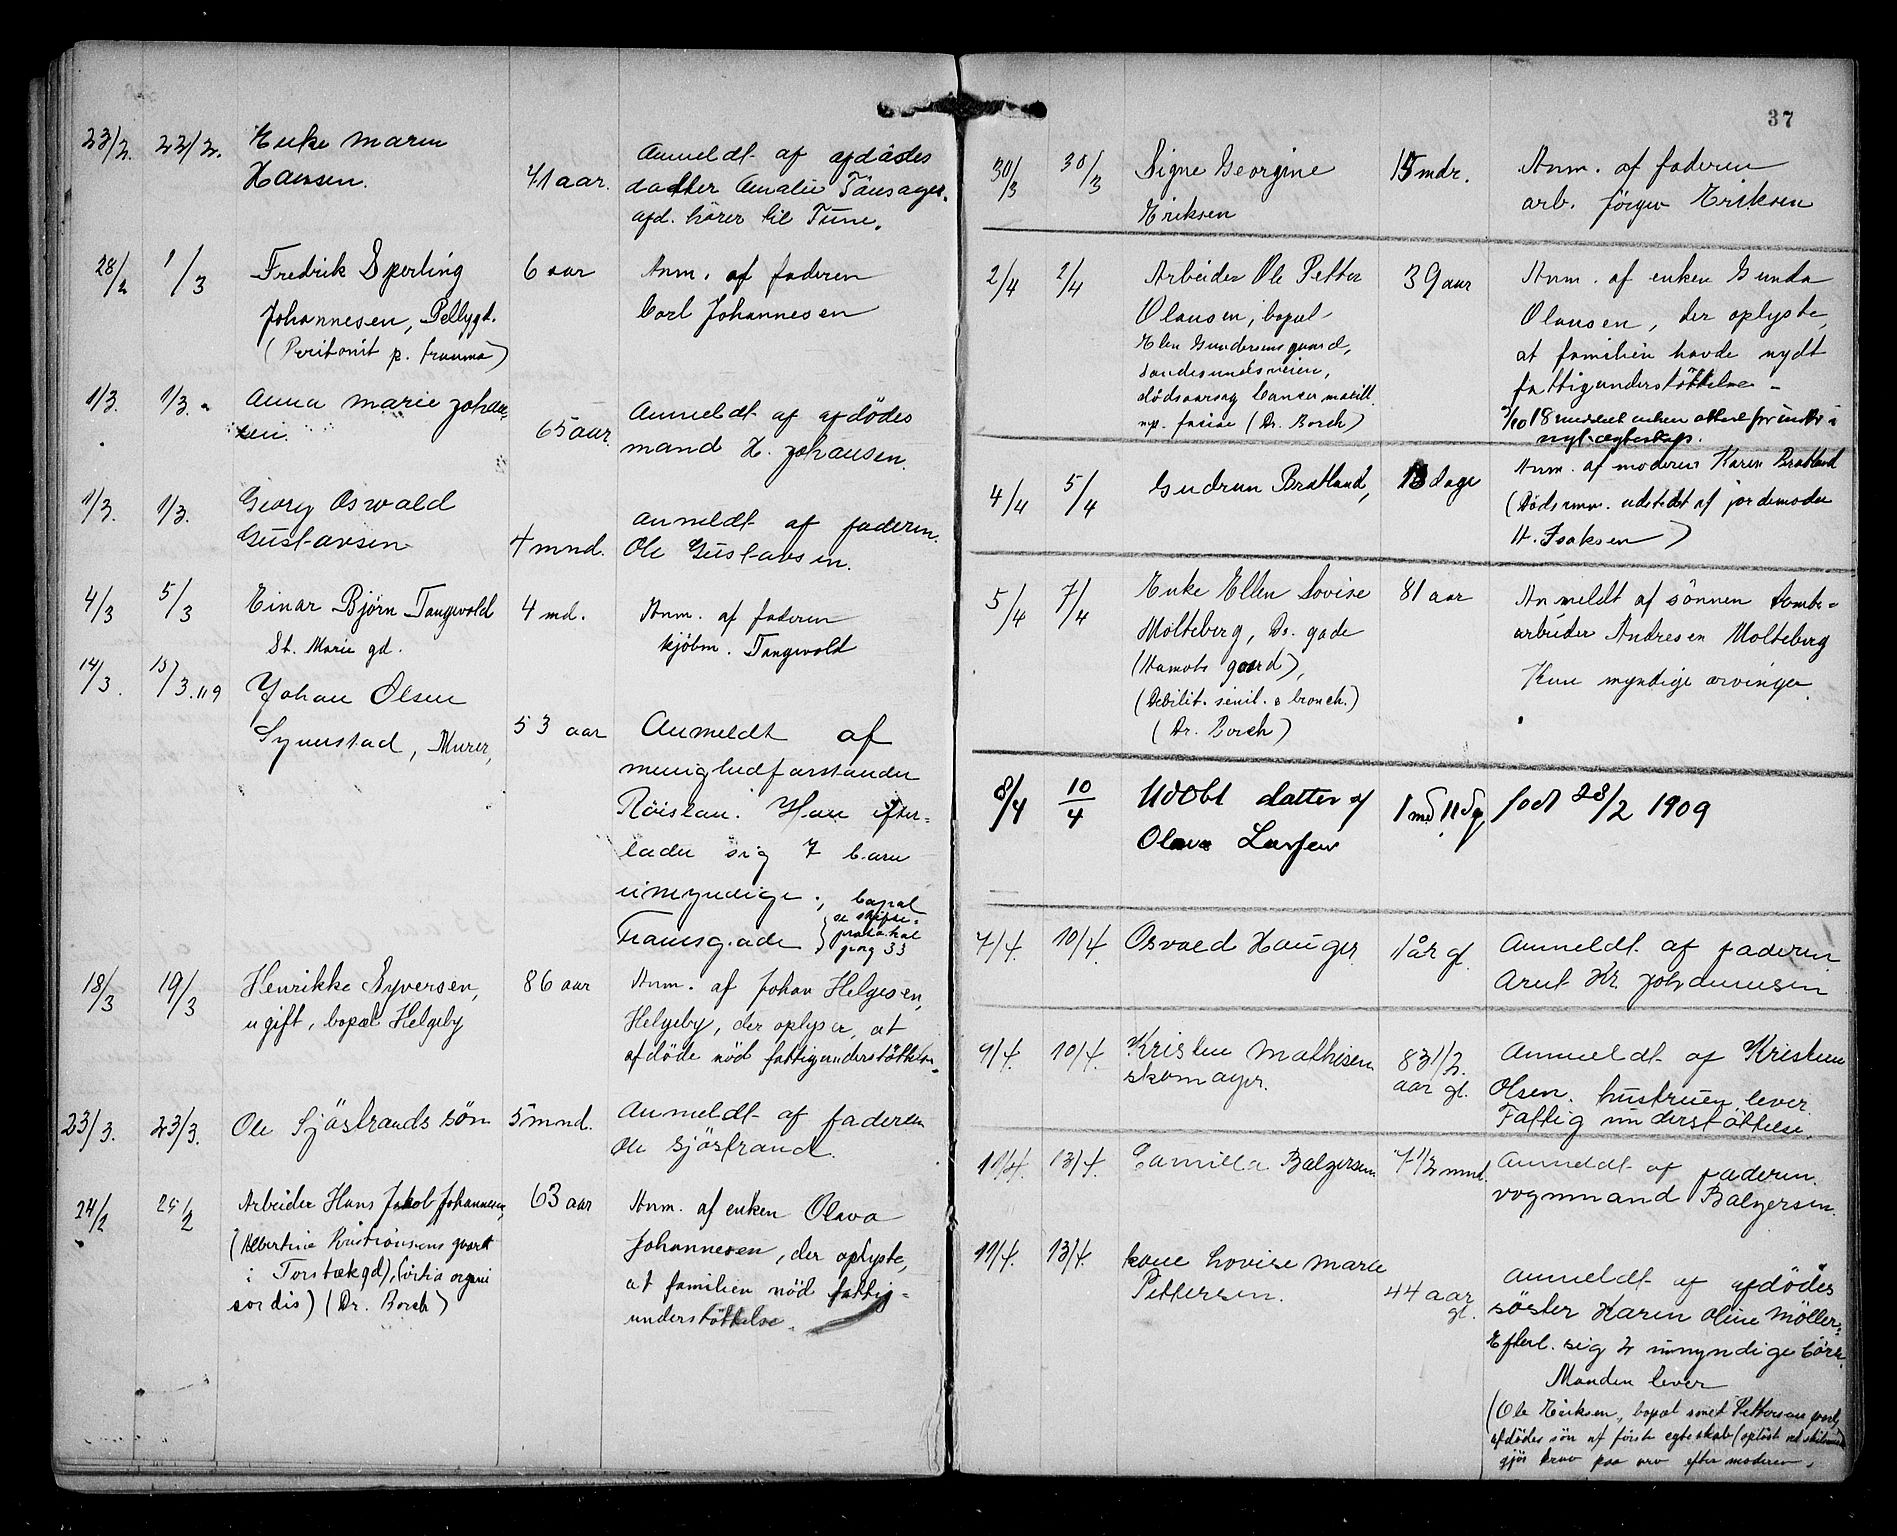 23/2. 22/2. Enke Maren
Hansen. 41 aar.
Anmeldt af afdødes
datter Amalie Tønsager.
afd. hører til Tune.
28/2 1/3 Fredrik Sperling 6 aar Anm. af faderen
Johannesen, Pellygd. Carl Johannesen
(Peritonit p. trauma)
1/3. 1/3. Anna Marie Johan-
sen. 65 aar.
Anmeldt af afdødes
mand H. Johansen.
1/3. 1/3. Georg Oswald
Gustavsen 4 mnd.
Anmeldt af faderen.
Ole Gustavsen.
4/3 5/3 Einar Bjørn Tangvold 4 md. Anm. af faderen
St. Marie gd. kjøbm. Tangvold
14/3. 15/3. 119 Johan Olsen
Synnstad, Murer, 53 aar
Anmeldt af
menighedforstander
Røislan. Han efter-
lader sig 7 barn
umyndige., bopæl
Transgade
se skifte-
protokol
pag 33
18/3 19/3 Henrikke Syversen, 86 aar Anm. af Johan Helgesen,
ugift, bopæl Helgeby Helgeby, der oplyser, at
afdøde nød fattigunderstøttelse.
23/3. 23/3. Ole Sjöstrands søn 5 mnd. Anmeldt af faderen
Ole Sjöstrand.
24/2 25/2 Arbeider Hans Jakob Johannesen, 63 aar Anm. af enken Olava
(Albertine Kristiansens gaard Johannesen, der oplyste,
i Torsbækgd), (vitia organi at familien nød fattig-
cordis) (Dr. Borch) understøttelse.
37
30/3 30/3 Signe Georgine 15 mdr. Anm. af faderen
Eriksen arb. Jørgen Eriksen
2/4 2/4 Arbeider Ole Petter 39 aar Anm. af enken Gunda
Olausen, bopæl Olausen, der oplyste,
Elen Gundersens gaard, at familien havde nydt
Sandesundsveien, fattigunderstøttelse -
dødsaarsag Cancer maxill.
sup. faciae (Dr. Borch)
nyt ægteskap.
4/4 5/4 Gudrun Bratland, 13 dage Anm. af moderen Karen Bratland
(Dødsanm. udstedt af jordemoder
H. Isaksen)
5/4 7/4 Enke Ellen Lovise 81 aar Anmeldt af sønnen tombe-
Molteberg, Ds. gade arbeider Andresen Molteberg
(Hamots gaard), Kun myndige arvinger.
(Debilit. senil. & bronch.)
(Dr. Borch)
8/4 10/4 Udøbt datter af 1 md 11 dg født 28/2 1909
Olava Larsen
7/4. 10/4. Osvald Hauger 1 år gl. Anmeldt af faderen.
Arnt Kr. Johannesen
9/4. 10/4. Kristen Mathisen 83 1/2. Anmeldt af Kristian
skomager. aar gl. Olsen. hustruen lever.
Fattig understøttelse.
11/4. 13/4. Camilla Balgersen 7 1/2 mnd. Anmeldt af faderen.
vognmand Balgersen.
11/4. 13/4. kone Lovise Marie
Pettersen. 44 aar
gl.
Anmeldt af afdødes
søster Karen Oline Møller.
Efterl. sig 2 umyndige børn.
Manden lever
(Ole Eriksen, bopæl Pettersens gaard,
afdødes søn af første egteskab (opløst ved
gjør krav paa arv efter moderen.